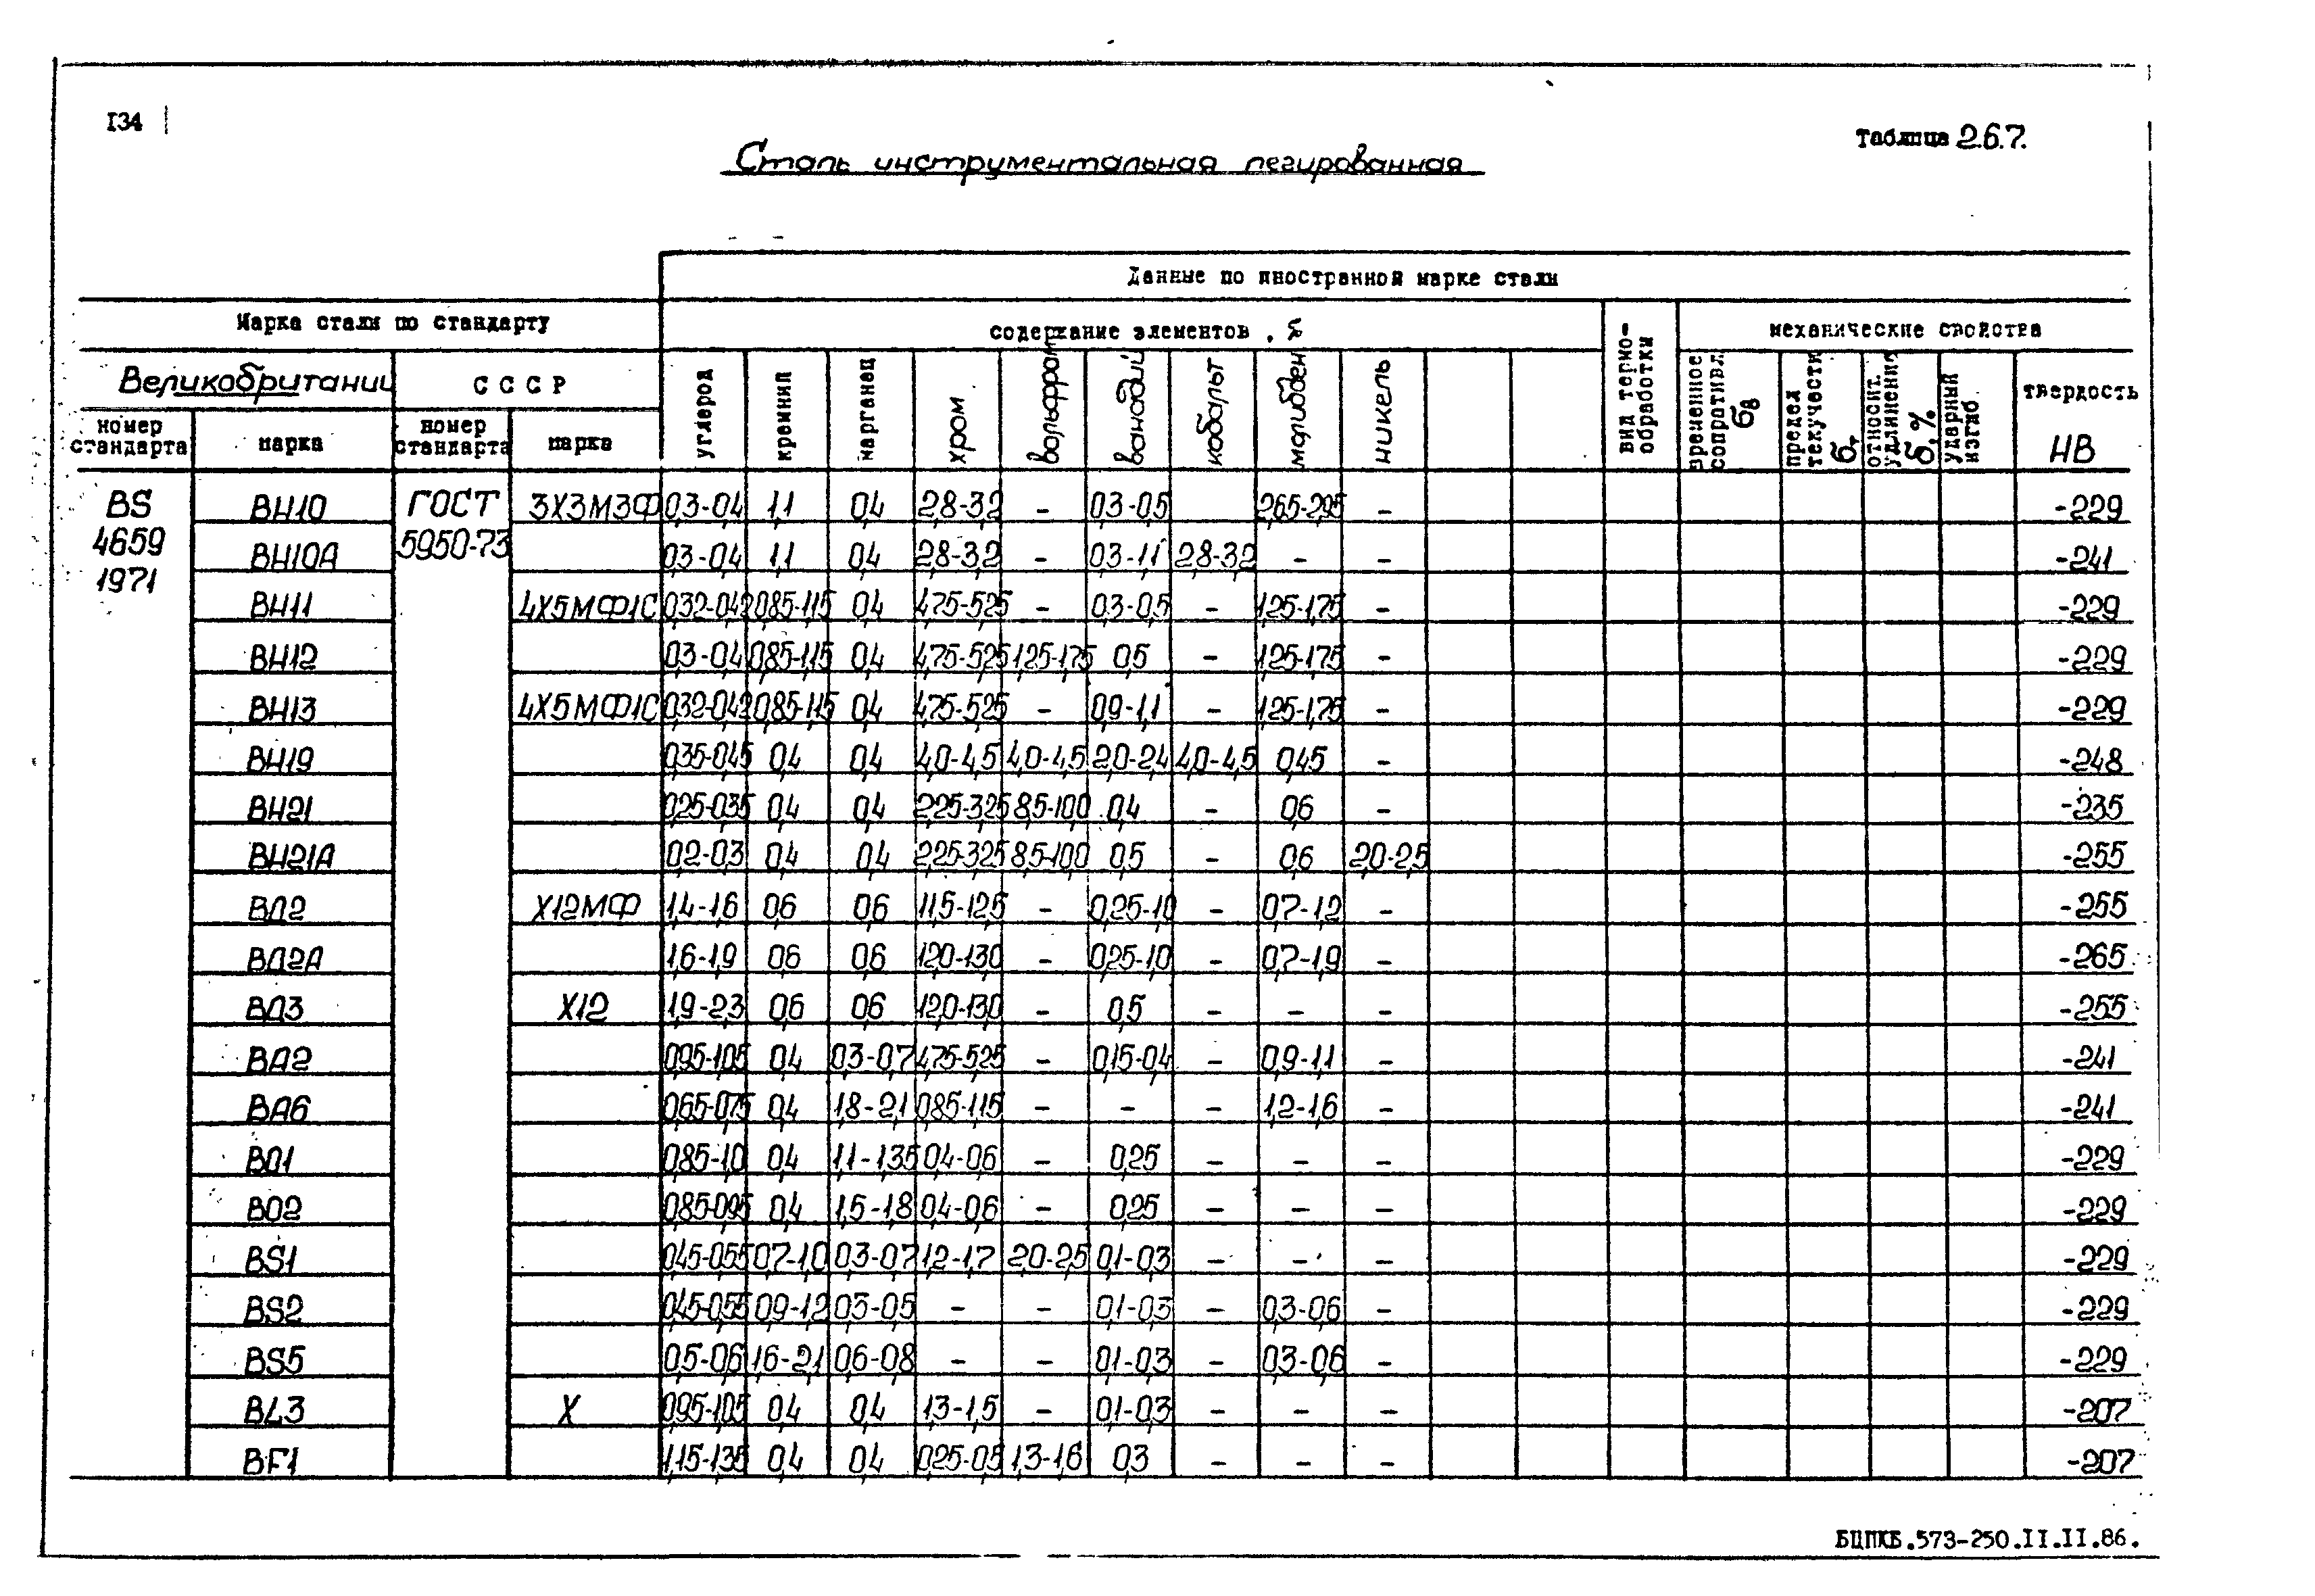 134
Таблица 2.6.7.
Сталь инструментальная легированная
Данные по иностранной марке стали
Марка стали по стандарту
содержание элементов, %
вид термо-обработки
механические свойства
Великобритании
СССР
номер стандарта
марка
номер стандарта
марка
углерод
кремний
марганец
хром
вольфрам
ванадий
кобальт
молибден
никель
временное сопротивл. σв
предел текучести σт
относит. удлинение δ, %
ударный изгиб
твердость НВ
BS 4659 1971
ГОСТ 5950-73
BH10 3Х3М3Ф 0,3-0,4 1,1 0,4 2,8-3,2 - 0,3-0,5 2,65-2,95 - -229
BH10A 0,3-0,4 1,1 0,4 2,8-3,2 - 0,3-1,1 2,8-3,2 - - -241
BH11 4Х5МФ1С 0,32-0,42 0,85-1,15 0,4 4,75-5,25 - 0,3-0,5 - 1,25-1,75 - -229
BH12 0,3-0,4 0,85-1,15 0,4 4,75-5,25 1,25-1,75 0,5 - 1,25-1,75 - -229
BH13 4Х5МФ1С 0,32-0,42 0,85-1,15 0,4 4,75-5,25 - 0,9-1,1 - 1,25-1,75 - -229
BH19 0,35-0,45 0,4 0,4 4,0-4,5 4,0-4,5 2,0-2,4 4,0-4,5 0,45 - -248
BH21 0,25-0,35 0,4 0,4 2,25-3,25 8,5-10,0 0,4 - 0,6 - -235
BH21A 0,2-0,3 0,4 0,4 2,25-3,25 8,5-10,0 0,5 - 0,6 2,0-2,5 -255
BD2 Х12МФ 1,4-1,6 0,6 0,6 11,5-12,5 - 0,25-1,0 - 0,7-1,2 - -255
BD2A 1,6-1,9 0,6 0,6 12,0-13,0 - 0,25-1,0 - 0,7-1,9 - -265
BD3 Х12 1,9-2,3 0,6 0,6 12,0-13,0 - 0,5 - - -255
BA2 0,95-1,05 0,4 0,3-0,7 4,75-5,25 - 0,15-0,4 - 0,9-1,1 - -241
BA6 0,65-0,75 0,4 1,8-2,1 0,85-1,15 - - - 1,2-1,6 - -241
BO1 0,85-1,0 0,4 1,1-1,35 0,4-0,6 - 0,25 - - - -229
BO2 0,85-0,95 0,4 1,5-1,8 0,4-0,6 - 0,25 - - - -229
BS1 0,45-0,55 0,7-1,0 0,3-0,7 1,2-1,7 2,0-2,5 0,1-0,3 - - - -229
BS2 0,45-0,55 0,9-1,2 0,3-0,5 - - 0,1-0,3 - 0,3-0,6 - -229
BS5 0,5-0,6 1,6-2,1 0,6-0,8 - - 0,1-0,3 - 0,3-0,6 - -229
BL3 Х 0,95-1,05 0,4 0,4 1,3-1,5 - 0,1-0,3 - - - -207
BF1 1,15-1,35 0,4 0,4 0,25-0,5 1,3-1,6 0,3 - - - -207
БЦПКБ.573-250.II.II.86.